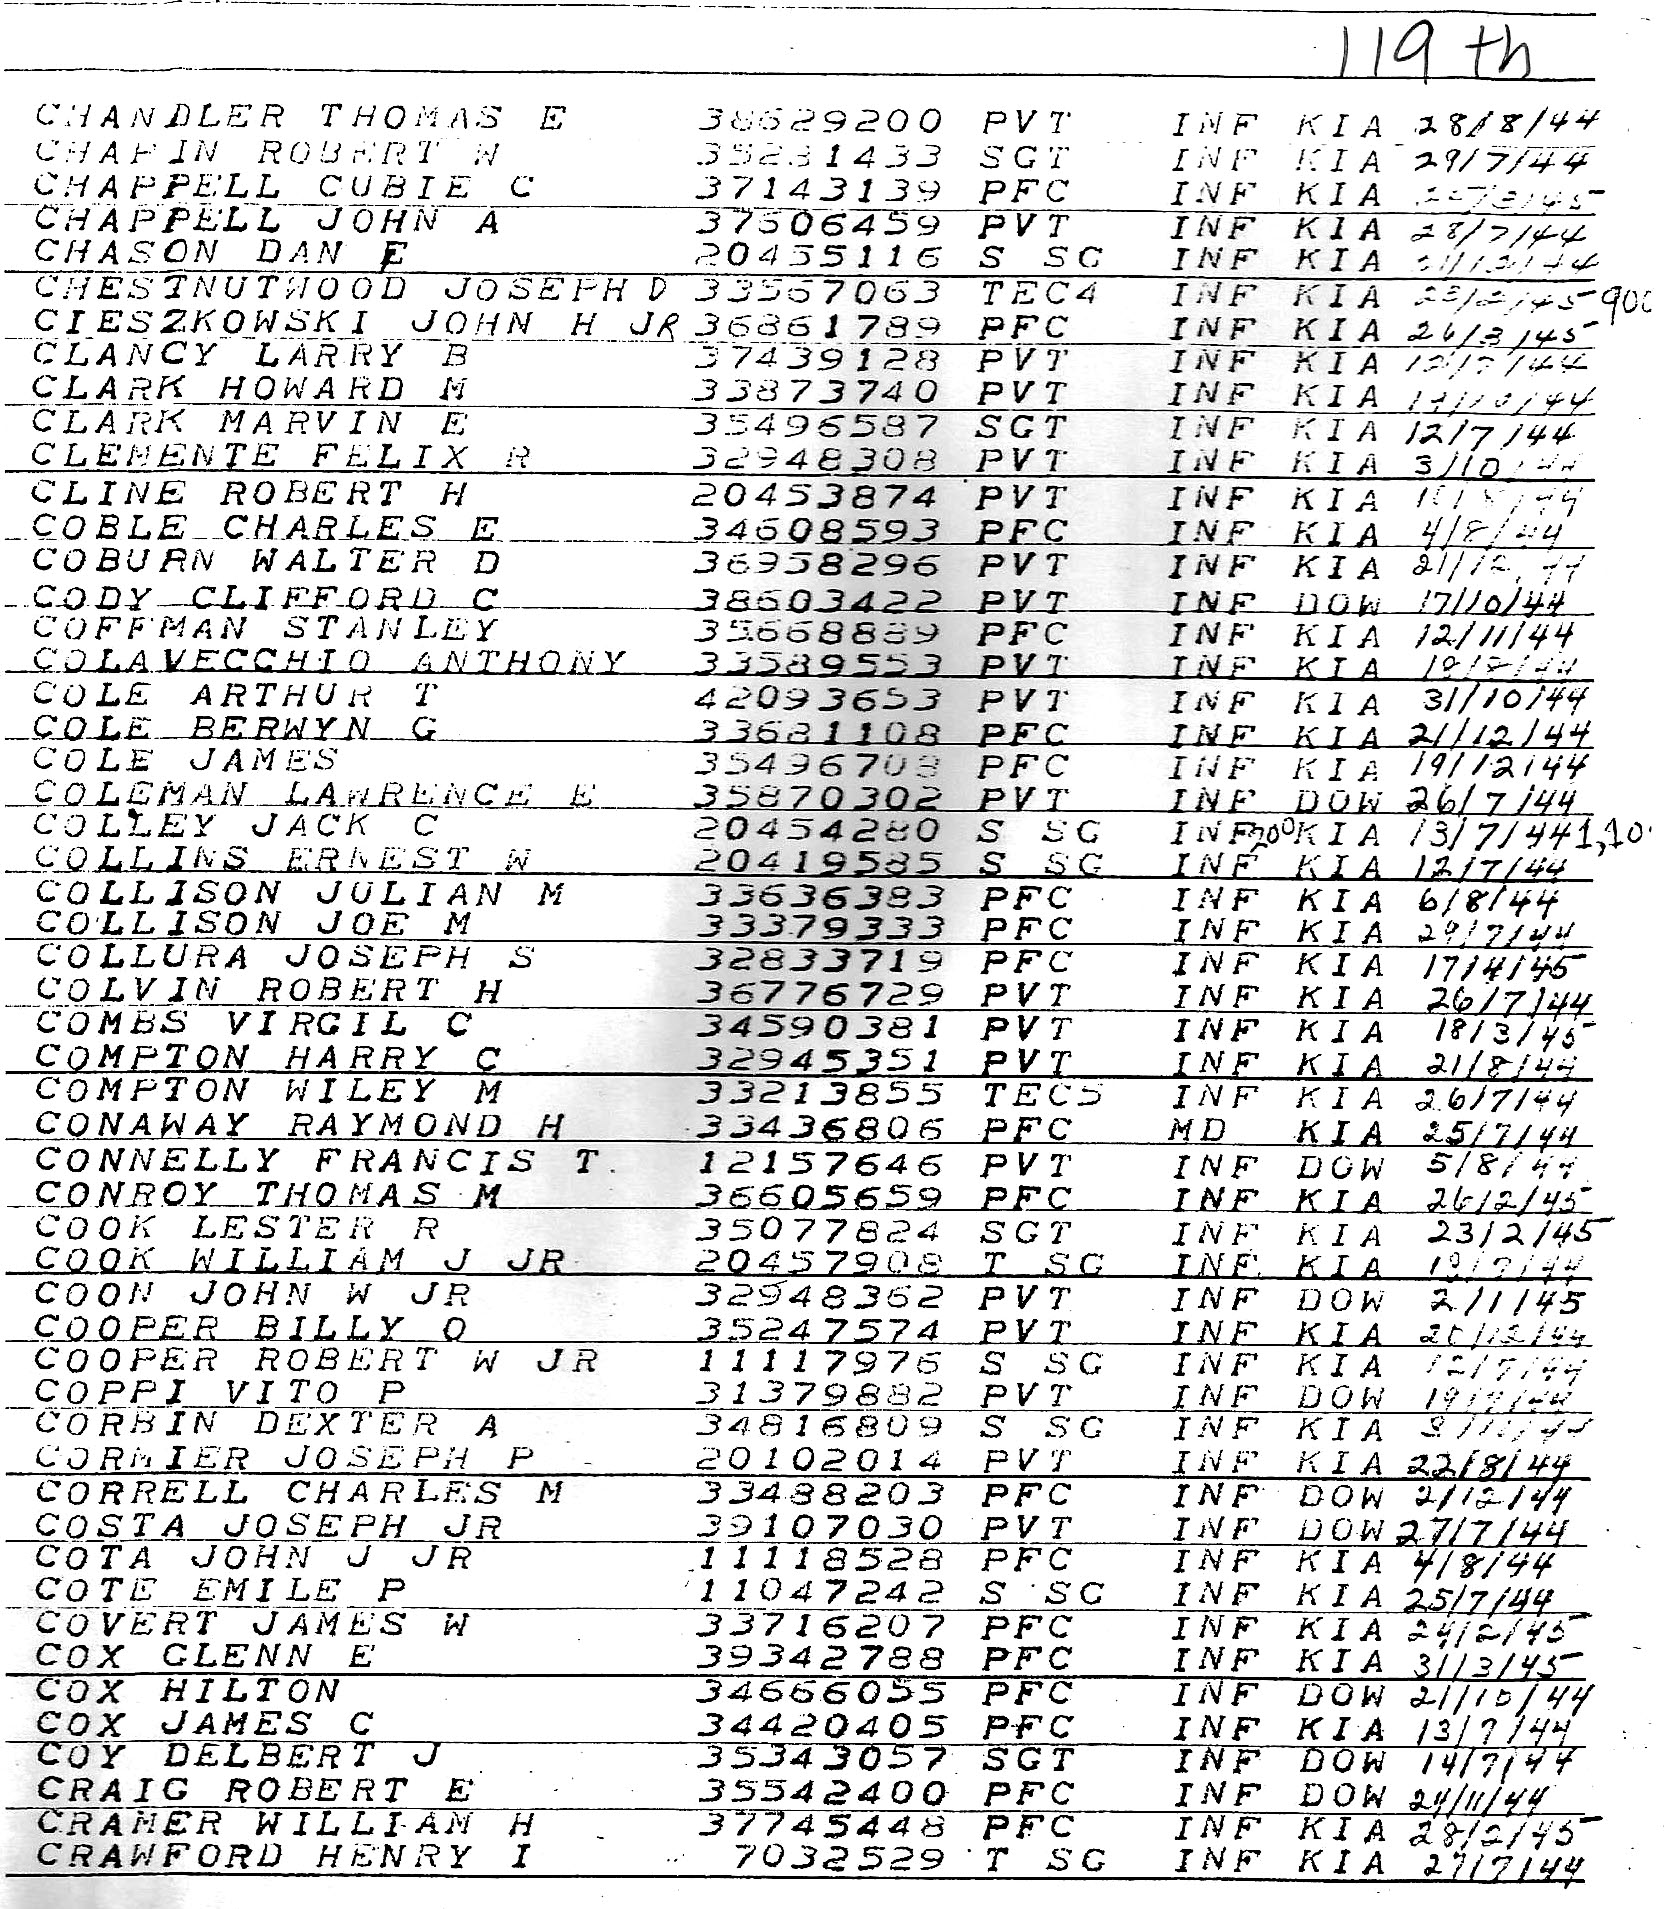 119th
CHANDLER THOMAS E 38629200 PVT INF KIA 28/8/44
CHAPIN ROBERT W 35231433 SGT INF KIA 29/7/44
CHAPPELL CUBIE C 37143139 PFC INF KIA
CHAPPELL JOHN A 37506459 PVT INF KIA 28/7/44
CHASON DAN E 20455116 S SG INF KIA
CHESTNUTWOOD JOSEPH D 33567063 TEC4 INF KIA 900
CIESZKOWSKI JOHN H JR 36861789 PFC INF KIA 26/3/45
CLANCY LARRY B 37439128 PVT INF KIA
CLARK HOWARD M 33873740 PVT INF KIA
CLARK MARVIN E 35496587 SGT INF KIA 12/7/44
CLEMENTE FELIX R 32948308 PVT INF KIA 3/10/44
CLINE ROBERT H 20453874 PVT INF KIA
COBLE CHARLES E 34608593 PFC INF KIA 4/8/44
COBURN WALTER D 36958296 PVT INF KIA 21/12/44
CODY CLIFFORD C 38603422 PVT INF DOW 17/10/44
COFFMAN STANLEY 35668889 PFC INF KIA 12/11/44
COLAVECCHIO ANTHONY 33589553 PVT INF KIA
COLE ARTHUR T 42093653 PVT INF KIA 31/10/44
COLE BERWYN G 33681108 PFC INF KIA 21/12/44
COLE JAMES 35496708 PFC INF KIA 19/12/44
COLEMAN LAWRENCE E 35870302 PVT INF DOW 26/7/44
COLLEY JACK C 20454280 S SG INF 200 KIA 13/7/44
COLLINS ERNEST W 20419585 S SG INF KIA 12/7/44
COLLISON JULIAN M 33636383 PFC INF KIA 6/8/44
COLLISON JOE M 33379333 PFC INF KIA 29/7/44
COLLURA JOSEPH S 32833719 PFC INF KIA 17/4/45
COLVIN ROBERT H 36776729 PVT INF KIA 26/7/44
COMBS VIRGIL C 34590381 PVT INF KIA 18/3/45
COMPTON HARRY C 32945351 PVT INF KIA 21/8/44
COMPTON WILEY M 33213855 TEC5 INF KIA 26/7/44
CONAWAY RAYMOND H 33436806 PFC MD KIA 25/7/44
CONNELLY FRANCIS T 12157646 PVT INF DOW 5/8/44
CONROY THOMAS M 36605659 PFC INF KIA 26/2/45
COOK LESTER R 35077824 SGT INF KIA 23/2/45
COOK WILLIAM J JR 20457908 T SG INF KIA
COON JOHN W JR 32948362 PVT INF DOW 2/1/45
COOPER BILLY O 35247574 PVT INF KIA
COOPER ROBERT W JR 11117976 S SG INF KIA 12/7/44
COPPI VITO P 31379882 PVT INF DOW
CORBIN DEXTER A 34816809 S SG INF KIA
CORMIER JOSEPH P 20102014 PVT INF KIA 22/8/44
CORRELL CHARLES M 33488203 PFC INF DOW 2/12/44
COSTA JOSEPH JR 39107030 PVT INF DOW 27/7/44
COTA JOHN J JR 11118528 PFC INF KIA 4/8/44
COTE EMILE P 11047242 S SG INF KIA 25/7/44
COVERT JAMES W 33716207 PFC INF KIA 24/2/45
COX GLENN E 39342788 PFC INF KIA 31/3/45
COX HILTON 34666055 PFC INF DOW 21/10/44
COX JAMES C 34420405 PFC INF KIA 13/7/44
COY DELBERT J 35343057 SGT INF DOW 14/7/44
CRAIG ROBERT E 35542400 PFC INF DOW 24/11/44
CRAMER WILLIAM H 37745448 PFC INF KIA 28/2/45
CRAWFORD HENRY I 7032529 T SG INF KIA 27/7/44